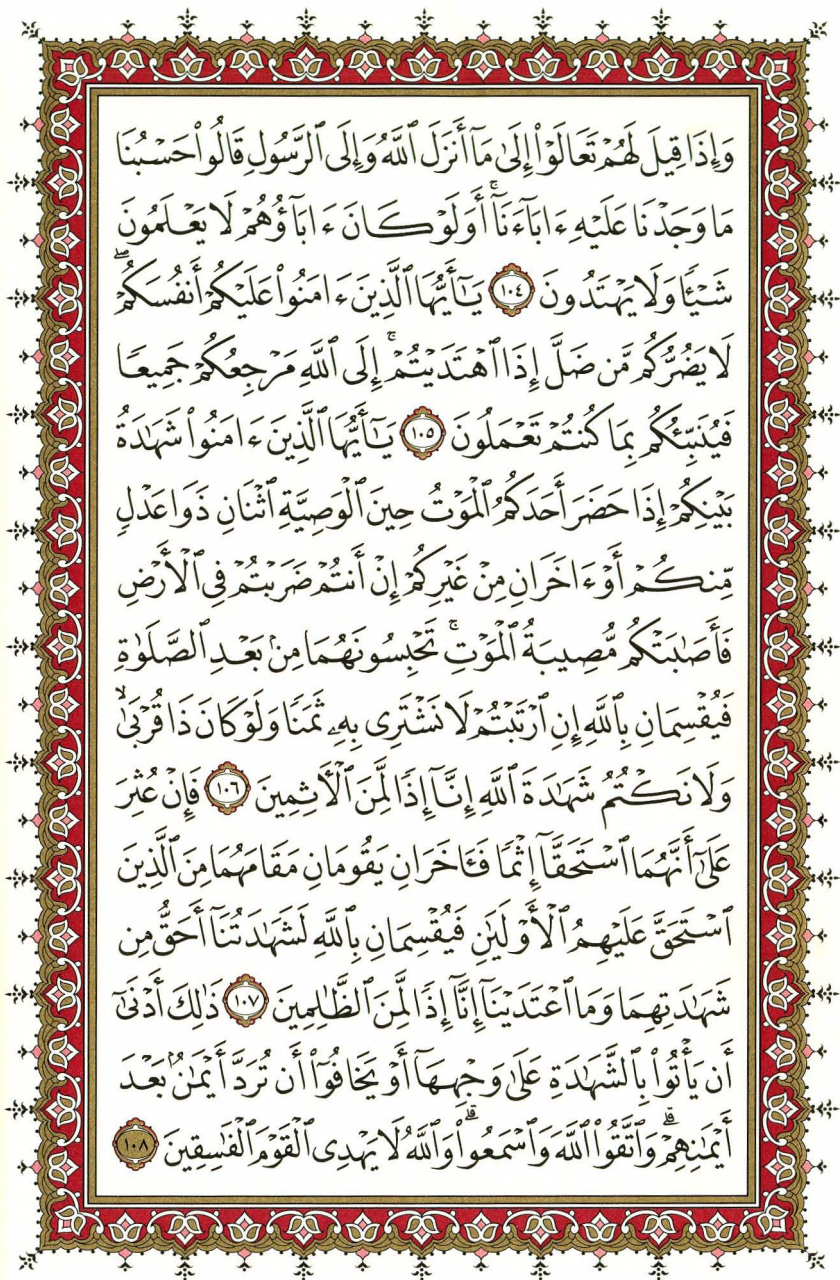 وَإِذَا قِيلَ لَهُمْ تَعَالَوْا۟ إِلَىٰ مَآ أَنزَلَ ٱللَّهُ وَإِلَى ٱلرَّسُولِ قَالُوا۟ حَسْبُنَا
مَا وَجَدْنَا عَلَيْهِ ءَابَآءَنَآ ۚ أَوَلَوْ كَانَ ءَابَآؤُهُمْ لَا يَعْلَمُونَ
شَيْـًٔا وَلَا يَهْتَدُونَ ١٠٤ يَـٰٓأَيُّهَا ٱلَّذِينَ ءَامَنُوا۟ عَلَيْكُمْ أَنفُسَكُمْ ۖ
لَا يَضُرُّكُم مَّن ضَلَّ إِذَا ٱهْتَدَيْتُمْ ۚ إِلَى ٱللَّهِ مَرْجِعُكُمْ جَمِيعًا
فَيُنَبِّئُكُم بِمَا كُنتُمْ تَعْمَلُونَ ١٠٥ يَـٰٓأَيُّهَا ٱلَّذِينَ ءَامَنُوا۟ شَهَـٰدَةُ
بَيْنِكُمْ إِذَا حَضَرَ أَحَدَكُمُ ٱلْمَوْتُ حِينَ ٱلْوَصِيَّةِ ٱثْنَانِ ذَوَا عَدْلٍ
مِّنكُمْ أَوْ ءَاخَرَانِ مِنْ غَيْرِكُمْ إِنْ أَنتُمْ ضَرَبْتُمْ فِى ٱلْأَرْضِ
فَأَصَـٰبَتْكُم مُّصِيبَةُ ٱلْمَوْتِ ۚ تَحْبِسُونَهُمَا مِنۢ بَعْدِ ٱلصَّلَوٰةِ
فَيُقْسِمَانِ بِٱللَّهِ إِنِ ٱرْتَبْتُمْ لَا نَشْتَرِى بِهِۦ ثَمَنًا وَلَوْ كَانَ ذَا قُرْبَىٰ ۙ
وَلَا نَكْتُمُ شَهَـٰدَةَ ٱللَّهِ إِنَّآ إِذًا لَّمِنَ ٱلْـَٔاثِمِينَ ١٠٦ فَإِنْ عُثِرَ
عَلَىٰٓ أَنَّهُمَا ٱسْتَحَقَّآ إِثْمًا فَـَٔاخَرَانِ يَقُومَانِ مَقَامَهُمَا مِنَ ٱلَّذِينَ
ٱسْتَحَقَّ عَلَيْهِمُ ٱلْأَوْلَيَـٰنِ فَيُقْسِمَانِ بِٱللَّهِ لَشَهَـٰدَتُنَآ أَحَقُّ مِن
شَهَـٰدَتِهِمَا وَمَا ٱعْتَدَيْنَآ إِنَّآ إِذًا لَّمِنَ ٱلظَّـٰلِمِينَ ١٠٧ ذَٰلِكَ أَدْنَىٰٓ
أَن يَأْتُوا۟ بِٱلشَّهَـٰدَةِ عَلَىٰ وَجْهِهَآ أَوْ يَخَافُوٓا۟ أَن تُرَدَّ أَيْمَـٰنٌۢ بَعْدَ
أَيْمَـٰنِهِمْ ۗ وَٱتَّقُوا۟ ٱللَّهَ وَٱسْمَعُوا۟ ۗ وَٱللَّهُ لَا يَهْدِى ٱلْقَوْمَ ٱلْفَـٰسِقِينَ ١٠٨